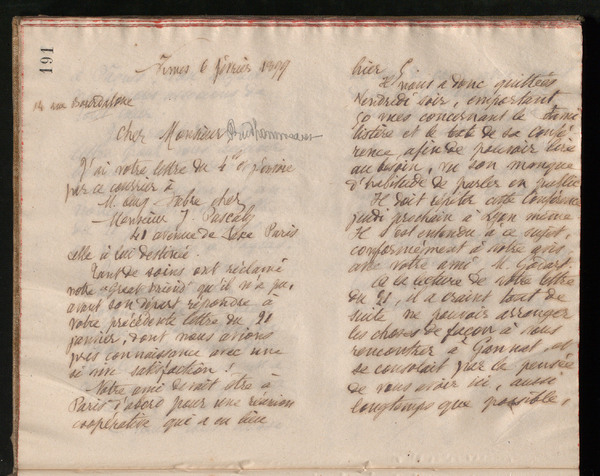 191
Nîmes 6 février 1899
14 rue Bourdaloue
Cher Monsieur
J'ai votre lettre du 4 et j'envoie
par ce courrier à
M. Aug. Fabre chez
Monsieur J. Pascaly
41 avenue de Saxe Paris
celle à lui destinée.
Tant de soins ont réclamé
votre "great friend" qu'il n'a pu,
avant son départ répondre à
votre précédente lettre du 21
janvier, dont nous avions
pris connaissance avec une
si vive satisfaction !
Votre ami devait être à
Paris d'abord pour une réunion
coopérative qui a eu lieu
hier.
Il nous a donc quittées
vendredi soir, emportant
50 vues concernant le Fami
listère et le texte de sa confé
rence afin de pouvoir lire
au besoin, vu son manque
d'habitude de parler en public
Il doit répéter cette conférence
jeudi prochain à Lyon même
Il s'est entendu à ce sujet,
conformément à votre avis,
avec votre ami M.
à la lecture de votre lettre
du 21, il a craint tout de
suite ne pouvoir arranger
les choses de façon à vous
rencontrer à Gannat, et
se consolait par la pensée
de vous avoir ici, aussi
longtemps que possible,